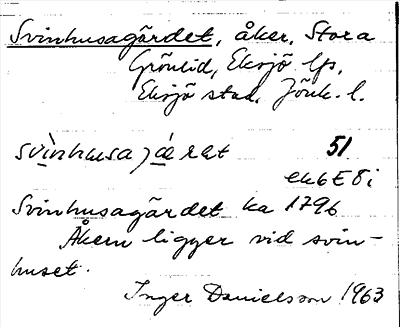 Svinhusagärdet, åker, Stora
Grönlid, Eksjö lfs,
Eksjö stad. Jönk. l.
svinhusajæret 51
ek6E8i
Svinhusagärdet ka 1796
Åkern ligger vid svin-
huset.
Inger Danielsson 1963